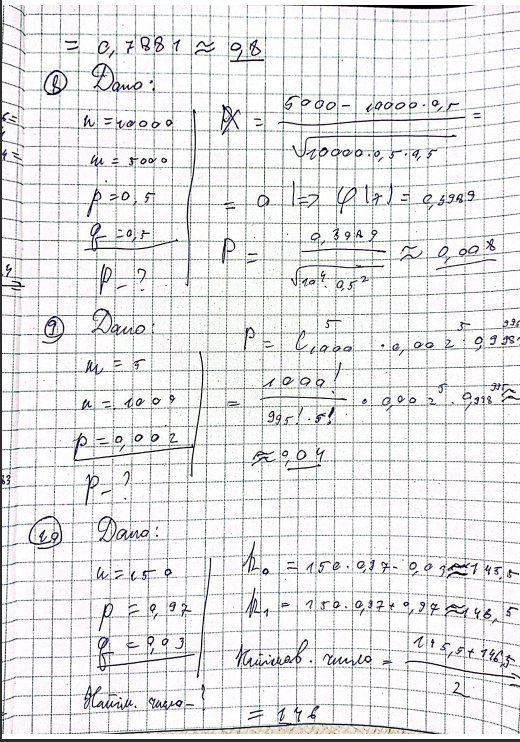 = 0,7881 ≈ 0,8
8 Дано:
n = 10000
m = 5000
p = 0,5
q = 0,5
P - ?
X = (5000 - 10000 · 0,5) / √(10000 · 0,5 · 0,5) =
= 0 |=> φ(x) = 0,3989
P = 0,3989 / √(10⁴ · 0,5²) ≈ 0,008
9 Дано:
m = 5
n = 1000
p = 0,002
P - ?
P = C⁵₁₀₀₀ · 0,002⁵ · 0,998⁹⁹⁵
= 1000! / (995! · 5!) · 0,002⁵ · 0,998⁹⁹⁵ ≈
≈ 0,04
10 Дано:
n = 150
p = 0,97
q = 0,03
Найім. число - ?
k₀ = 150 · 0,97 - 0,03 ≈ 145,5
k₁ = 150 · 0,97 + 0,97 ≈ 146,5
число = (145,5 + 146,5) / 2
= 146